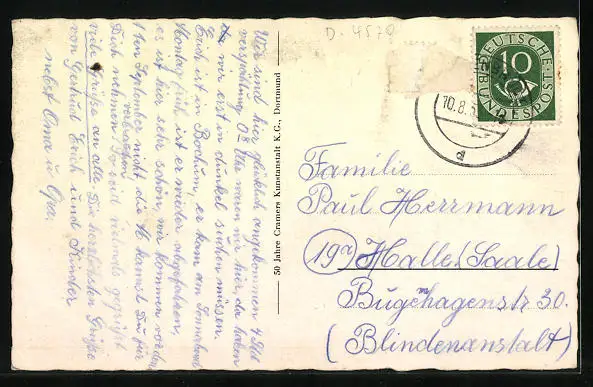 Wir sind hier glücklich angekommen 4 Std
verspätung 0⁸ Uhr waren wir hier, da haben
wir erst in dunkel suchen müssen.
Erich ist in Bochum, er kam am Sonnabend
Montag früh ist er wieder abgefahren.
es ist hier sehr schön, wir kommen vor dem
1ten September nicht die 16 kannst Du für
Dich nehmen. Seid vielmals gegrüßt
viele Grüße an alle. Die herzlichsten Grüße
von Gertrud Erich und Kinder
nebst Oma u Opa.
50 Jahre Cramers Kunstanstalt K.G., Dortmund
D. 4570
DEUTSCHE BUNDESPOST
10
10.8.5
a
Familie
Paul Herrmann
(19a) Halle (Saale)
Bugenhagenstr 30.
(Blindenanstalt)